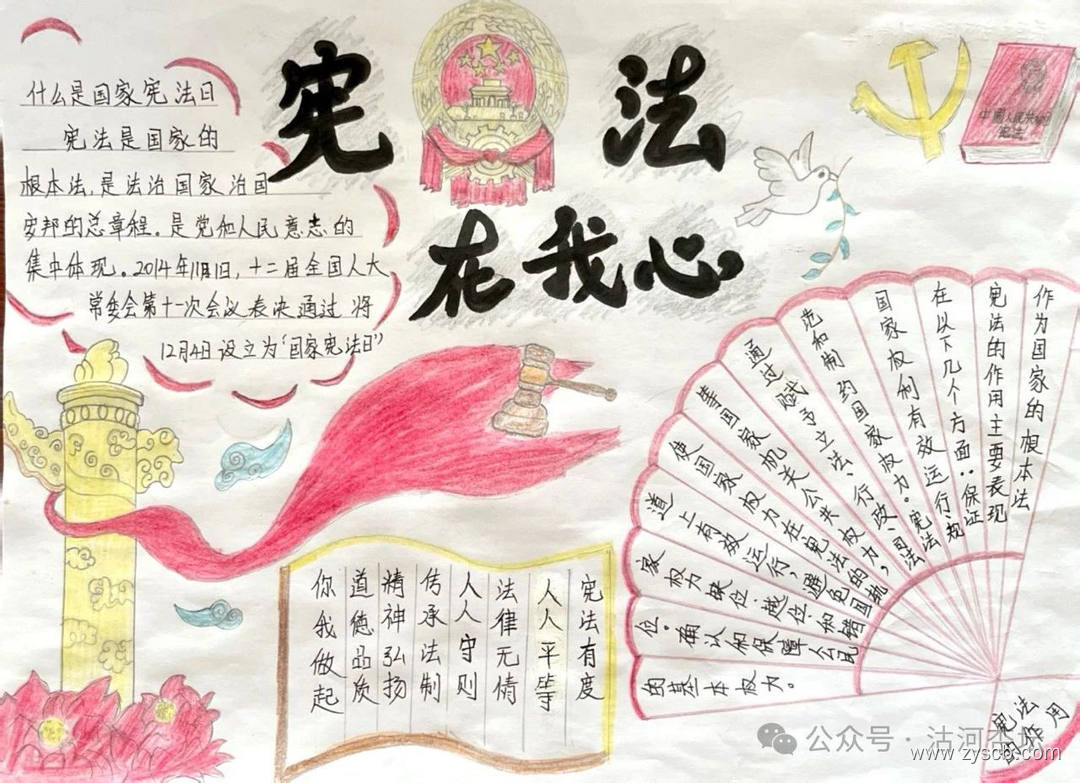 宪法
在我心
什么是国家宪法日
宪法是国家的
根本法,是法治国家治国
安邦的总章程。是党和人民意志的
集中体现。2014年11月1日,十二届全国人大
常委会第十一次会议表决通过 将
12月4日设立为“国家宪法日”
宪法
作为国家的根本法
宪法的作用主要表现
在以下几个方面:保证
国家权利有效运行、规
范和制约国家权力。宪法
通过赋予立法、行政、司法
等国家机关公共权力,
使国家权力在宪法的轨
道上有效运行,避免国
家权力缺位、越位和错
位,确认和保障公民
的基本权力。
宪法
的作用
宪法有度
人人平等
法律无情
人人守则
传承法制
精神弘扬
道德品质
你我做起
公众号·沽河
www.zyscb.com